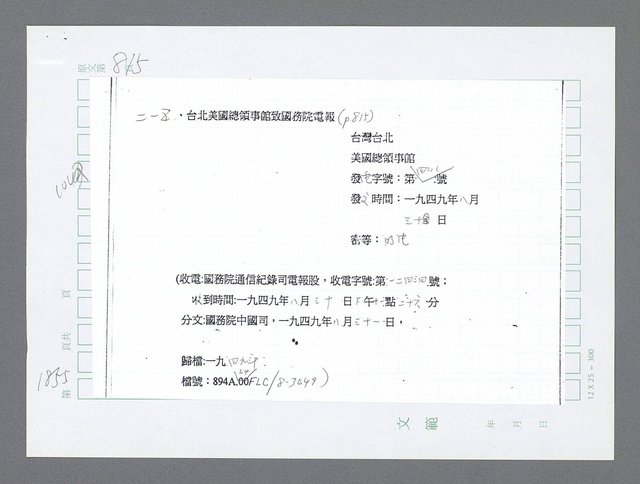 原文第 815
二一五、台北美國總領事館致國務院電報(p.815)
台灣台北
美國總領事館
發電字號：第 號
發文時間：一九四九年八月
三十 日
密等：明
(收電:國務院通信紀錄司電報股，收電字號:第一二四三四號；
收到時間:一九四九年八月三十 日下午十二點二十六分
分文:國務院中國司，一九四九年八月三十一日，
歸檔:一九四九年
檔號：894A.00/FLC/8-3049)
頁
頁共
第 1855
12 X 25 = 300
文 範
年 月 日